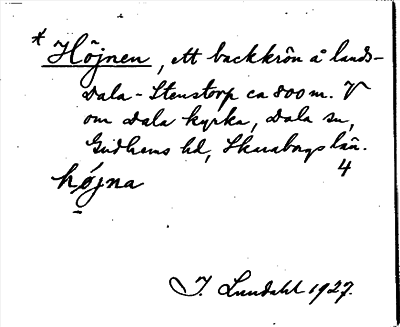 * Höjnen, ett backkrön å lands-
Dala - Stenstorp ca 800 m. V
om Dala kyrka, Dala sn,
Gudhems hd, Skaraborgs län.
höjna 4
I. Lundahl 1927.